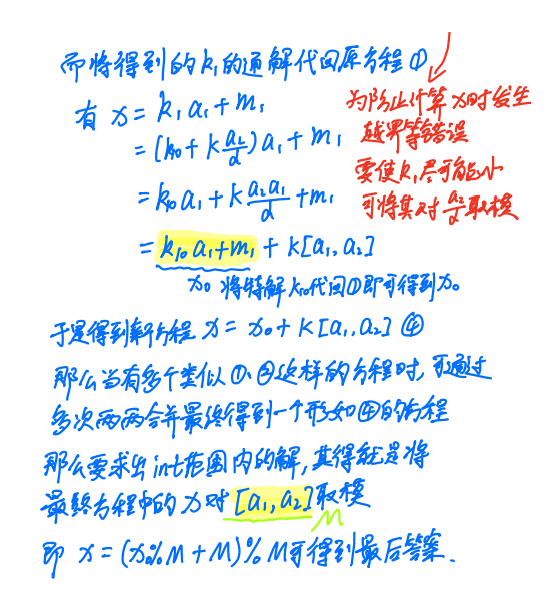 而将得到的k₁的通解代回原方程①
有 x = k₁a₁+m₁
= (k₁₀+k a₂/d)a₁+m₁
= k₁₀a₁+k a₂a₁/d+m₁
= k₁₀a₁+m₁+k[a₁,a₂]
x₀ 将特解k₁₀代回①即可得到x₀
为防止计算x时发生
越界等错误
要使k₁尽可能小
可将其对a₂/d取模
于是得到新方程 x = x₀+k[a₁,a₂] ④
那么当有多个类似①、②这样的方程时,可通过
多次两两合并最终得到一个形如④的方程
那么要求出int范围内的解,其得就是将
最终方程中的x对[a₁,a₂]取模
M
即 x=(x₀%M+M)%M可得到最后答案.